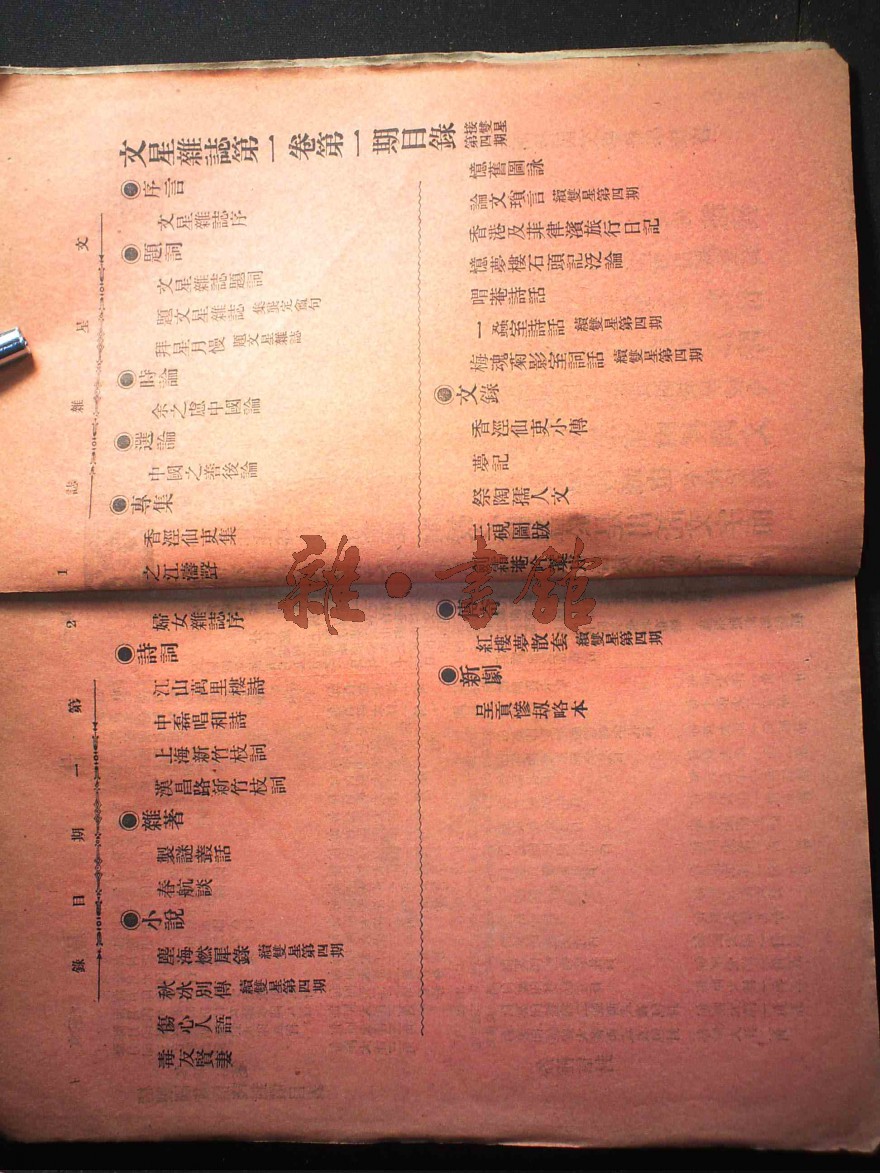 文星雜誌第一卷第一期目錄 接雙星第四期
序言
文星雜誌序
題詞
文星雜誌題詞
題文星雜誌 集龔定盦句
拜星月慢 題文星雜誌
時論
余之慮中國論
選論
中國之善後論
專集
香涇仙吏集
之江濤聲
憶舊圖詠
論文瑣言 續雙星第四期
香港及菲律濱旅行日記
憶夢樓石頭記泛論
喟菴詩話
一蝨室詩話 續雙星第四期
梅魂菊影室詞話 續雙星第四期
文錄
香涇仙吏小傳
夢記
祭陶孺人文
三硯圖跋
文星雜誌
1
婦女雜誌序
詩詞
江山萬里樓詩
中磊唱和詩
上海新竹枝詞
漢昌路新竹枝詞
雜著
製謎叢話
春航談
小說
塵海燃犀錄 續雙星第四期
秋冰別傳 續雙星第四期
傷心人語
毒友賢妻
傳奇
紅樓夢散套 續雙星第四期
新劇
呈貢慘刼略本
第一期目錄
2